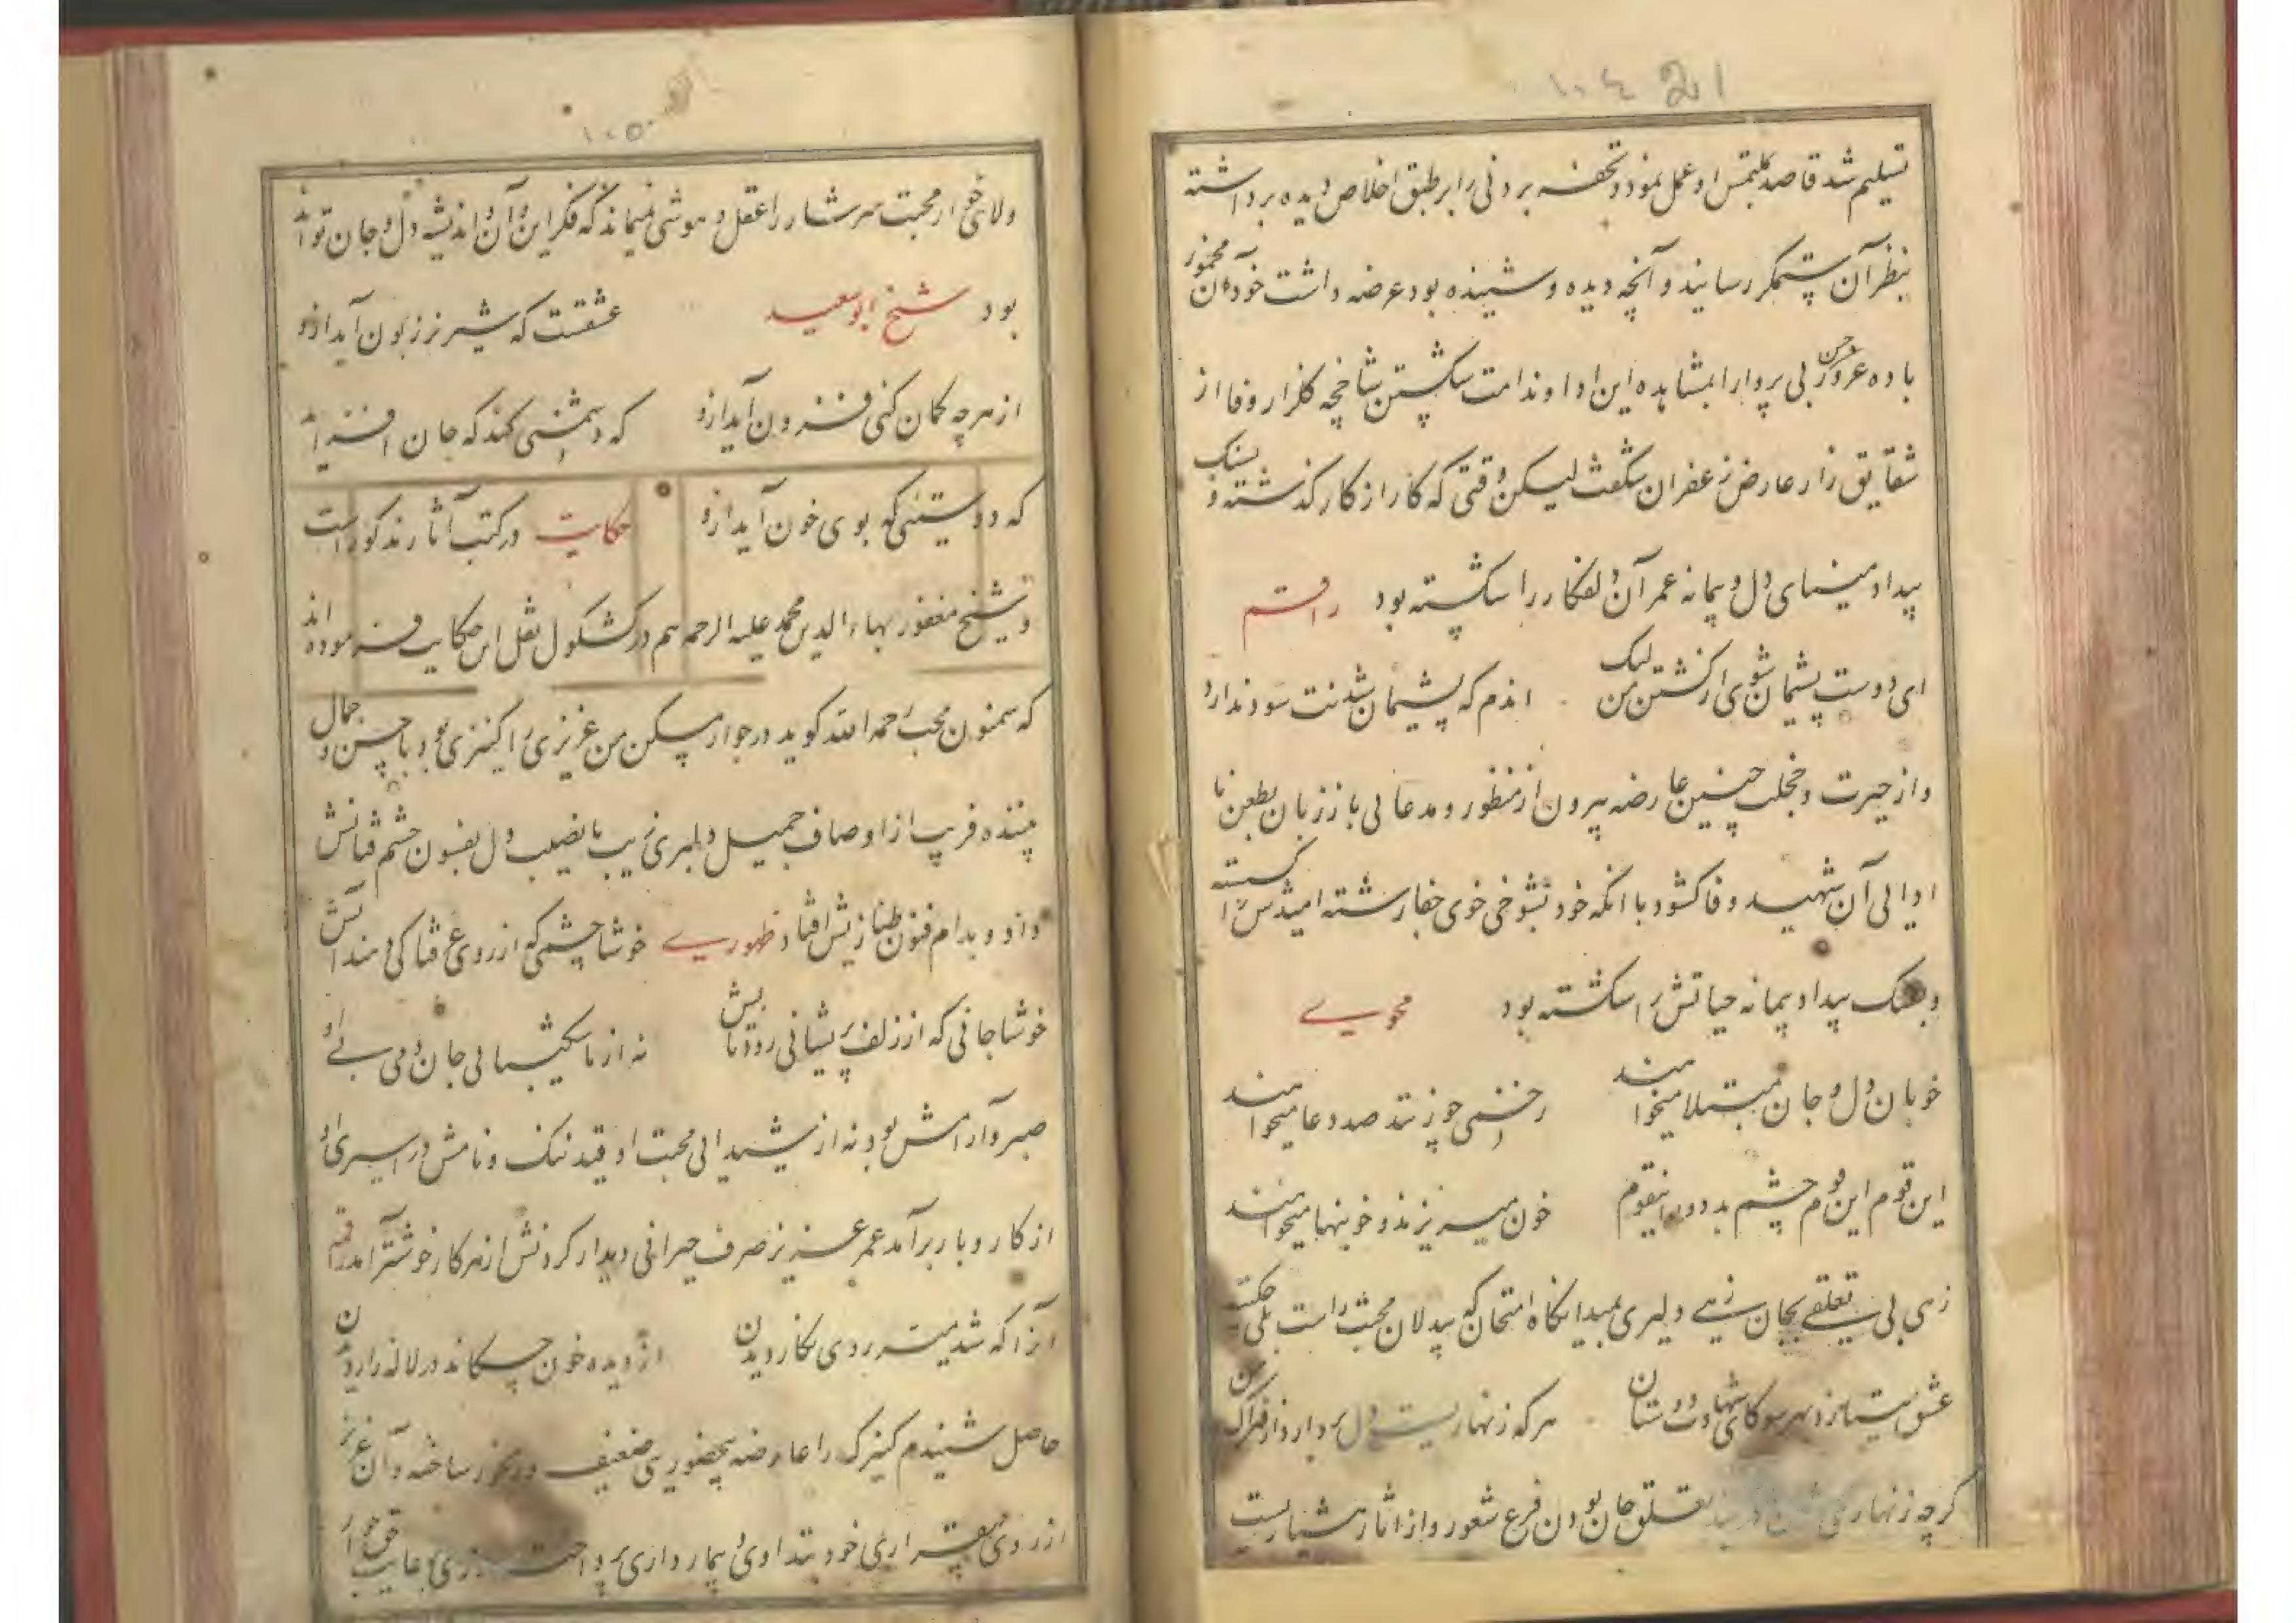 ١٠٤
تسلیم شد قاصد بملتمس او عمل نمود و تحفه بردنی را بر طبق اخلاص دیده برداشته
بنظر آن ستمگر رسانید و آنچه دیده و شنیده بود عرضه داشت خود آن مخمور
باده غرور حسن بی پروا را بمشاهده این ادا و ندامت شکستن شاخچه گلزار وفا از
شقایق زار عارض زعفران شگفت لیکن وقتی که کار از کار گذشته و بسنک
بیداد مینای دل و پیمانه عمر آن دلفکار را شکسته بود راقم
ای دوست پشیمان شوی از کشتن من لیک اندم که پشیمان شدنت سود ندارد
و از حیرت و خجلت چنین عارضه بیرون از منظور و مدعا لی باز زبان بطعن نا
ادا لی آن شهید وفا کشود با انکه خود بشوخی خوی جفا رشته امیدش را کسسته
و بسنک بیداد پیمانه حیاتش را شکسته بود محوی
خوبان دل و جان مبتلا میخواهند زخمی چو زنند صد دعا میخواهند
این قوم این قوم چشم بد دور اینقوم خون میریزند و خونبها میخواهند
زهی بی تعلقی بجان زهی دلیری بمیدانگاه امتحان که بیدلان محبت راست بلی
عشق میتازد بهر سو کای شهادت دوستان هر که زنهاریست دل بردارد از فتراک من
کرچه زنهاری تعلق جان بودن فرع شعور و از اثار هشیاریست
١٠٥
ولای خوار محبت سرشار را عقل و هوشی نمیماند که فکر این و آن و اندیشه دل و جان تواند
بود شیخ ابوسعید عشقست که شیر نر زبون آید ازو
از هر چه کمان کنی فزون آید ازو که دشمنی کند که جان افزاید
که دوستی که بوی خون آید ازو حکایت در کتب آثار مذکور است
و شیخ مغفور بهاءالدین محمد علیه الرحمه هم در کشکول نقل این حکایت فرموده اند
که سمنون محب رحمه الله کوید در جوار مسکن من عزیزی را کنیزی بود با حسن و جمال
بیننده فریب از اوصاف جمیل دلبری زیب با نصیب دل بفسون چشم فتانش
داده و بدام فنون طنازیش افتاد ظهوری خوشا چشمی که از روی عرقناکی بود آبش
خوشا جانی که از زلف پریشانی رود تابش نه از ناشکیبائی جان دمی بی او
صبر و آرامش بود نه از شیدائی محبت او قید ننک و نامش در اسیری او
از کار و بار برآمد عمر عزیز صرف حیرانی دیدار کردنش از هر کار خوشتر آمد راقم
آنرا که شد میسر روی نکار دیدن از دیده خون چکاند در لاله زار دیدن
حاصل شنیدم کنیزک را عارضه بحضوری ضعیف و رنجور ساخته و آن عزیز
از روی بیقراری خود بتداوی و بیمارداری پرداخت